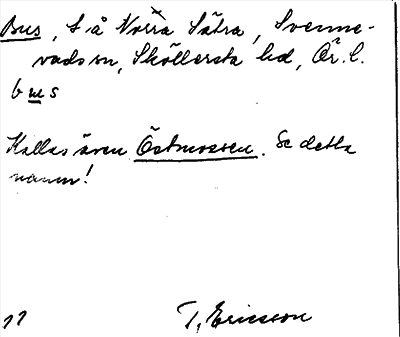 Bus, t å Norra Sätra, Svenne-
vads sn, Sköllersta hd, Ör. l.
bus
Kallas även Östmossen. Se detta
namn!
T. Ericsson